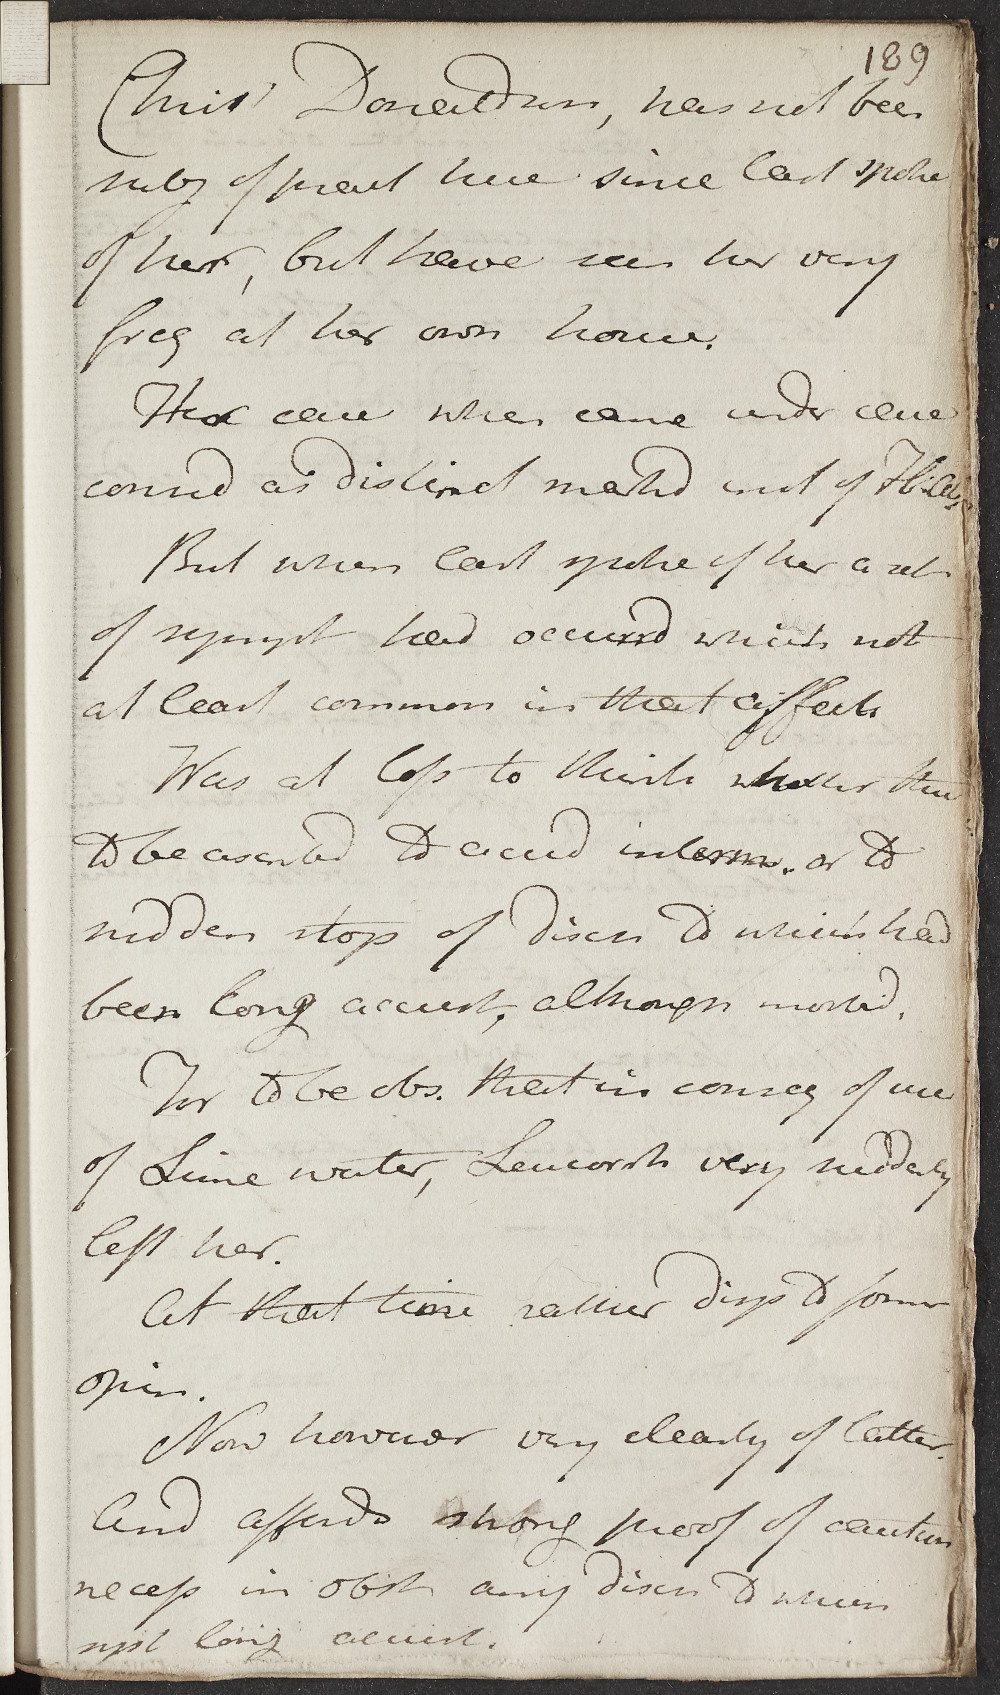 189
Chris' Donaldson, has not been
subj of pract here since last spoke
of her, but have seen her very
freq at her own house.
Her case when came under care
consid as distinct marked inst of
But when last spoke of her a set
of sympt had occurrd which not
at least common in that affect.
Was at loss to think whether these
to be ascribed to acced interm. or to
sudden stop of disch to which had
been long accust, although morbid.
For to be obs. that in conseq of use
of Lime water, Leucorrh very suddenly
left her.
At that time rather disp to former
opin.
Now however very clearly of latter.
And affords strong proof of caution
necess in obst any disch to which
syst long accust.